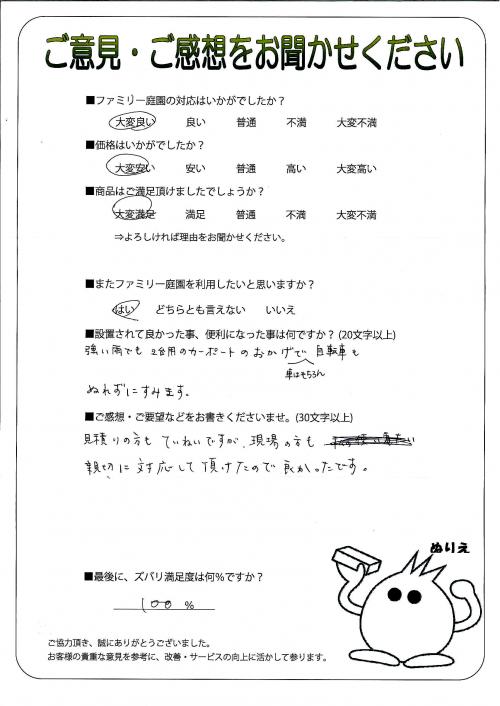 ご意見・ご感想をお聞かせください
■ファミリー庭園の対応はいかがでしたか？
大変良い 良い 普通 不満 大変不満
■価格はいかがでしたか？
大変安い 安い 普通 高い 大変高い
■商品はご満足頂けましたでしょうか？
大変満足 満足 普通 不満 大変不満
⇒よろしければ理由をお聞かせください。
■またファミリー庭園を利用したいと思いますか？
はい どちらとも言えない いいえ
■設置されて良かった事、便利になった事は何ですか？(20文字以上)
強い雨でも 2台用のカーポートのおかげで 自転車も
車はもちろん
ぬれずにすみます。
■ご感想・ご要望などをお書きくださいませ。(30文字以上)
見積りの方も ていねいですが、現場の方も
親切に 対応して頂けたので 良かったです。
ぬりえ
■最後に、ズバリ満足度は何％ですか？
100 ％
ご協力頂き、誠にありがとうございました。
お客様の貴重な意見を参考に、改善・サービスの向上に活かして参ります。